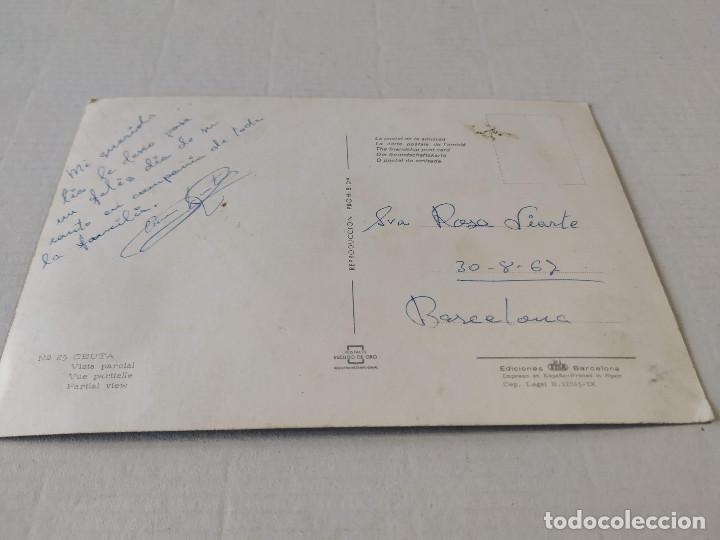 Mi querida
tía le deseo pase
un feliz día de su
santo en compañía de toda
la familia.
Nº 25 CEUTA
Vista parcial
Vue partielle
Partial view
REPRODUCCION PROHIBIDA
POSTALES
ESCUDO DE ORO
La postal de la amistad
La carte postale de l'amitié
The friendship post card
Die Freundschaftskarte
O postal da amizade
Sra Rosa Liarte
30-8-67
Barcelona
Ediciones Barcelona
Impreso en España-Printed in Spain
Dep. Legal B.
todocoleccion.net